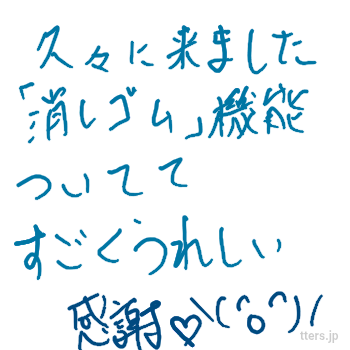 久々に来ました
「消しゴム」機能
ついてて
すごくうれしい
感謝♡\(^o^)/
tters.jp